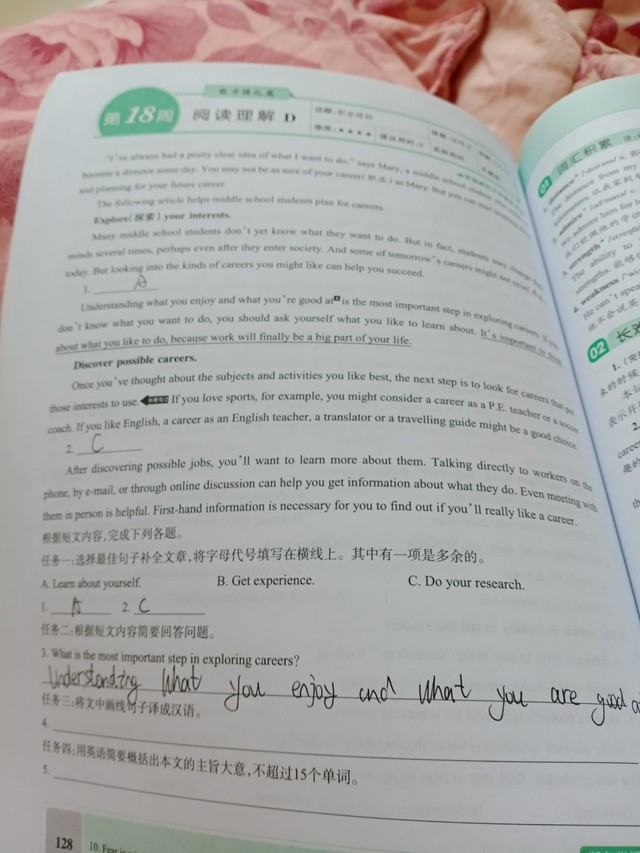 能力强化篇
第18周 阅读理解 D
"I've always had a pretty clear idea of what I want to do," says Mary, a middle school
become a director some day. You may not be as sure of your career(职业) as Mary. But you can
and planning for your future career.
The following article helps middle school students plan for careers.
Explore(探索) your interests.
Many middle school students don't yet know what they want to do. But in fact, students may change their
minds several times, perhaps even after they enter society. And some of tomorrow's careers might not exist
today. But looking into the kinds of careers you might like can help you succeed.
1. A
Understanding what you enjoy and what you're good at is the most important step in exploring careers. If you
don't know what you want to do, you should ask yourself what you like to learn about. It's important to think
about what you like to do, because work will finally be a big part of your life.
Discover possible careers.
Once you've thought about the subjects and activities you like best, the next step is to look for careers that put
those interests to use. If you love sports, for example, you might consider a career as a P.E. teacher or a soccer
coach. If you like English, a career as an English teacher, a translator or a travelling guide might be a good choice.
2. C
After discovering possible jobs, you'll want to learn more about them. Talking directly to workers on the
phone, by e-mail, or through online discussion can help you get information about what they do. Even meeting with
them in person is helpful. First-hand information is necessary for you to find out if you'll really like a career.
根据短文内容,完成下列各题。
任务一:选择最佳句子补全文章,将字母代号填写在横线上。其中有一项是多余的。
A. Learn about yourself. B. Get experience. C. Do your research.
1. A 2. C
任务二:根据短文内容简要回答问题。
3. What is the most important step in exploring careers?
Understanding what you enjoy and what you are good
任务三:将文中画线句子译成汉语。
4.
任务四:用英语简要概括出本文的主旨大意,不超过15个单词。
5.
128
01 词汇积累
The distance from my
The ability to
strengths.
4. weakness
He can't
02
1.
来的时候
2.